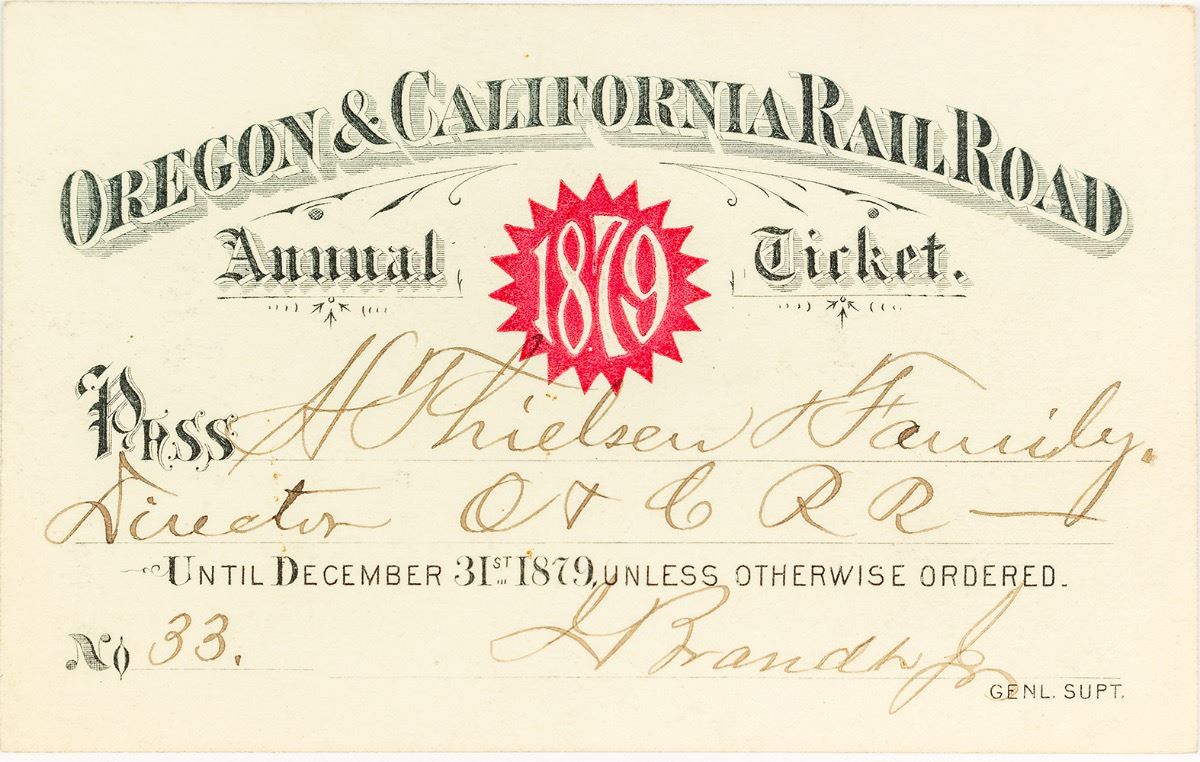 OREGON & CALIFORNIA RAIL ROAD
Annual 1879 Ticket.
PASS H Thielsen & Family.
Director O & C R R
UNTIL DECEMBER 31ST 1879, UNLESS OTHERWISE ORDERED.
No 33. J Brandt Jr
GENL. SUPT.